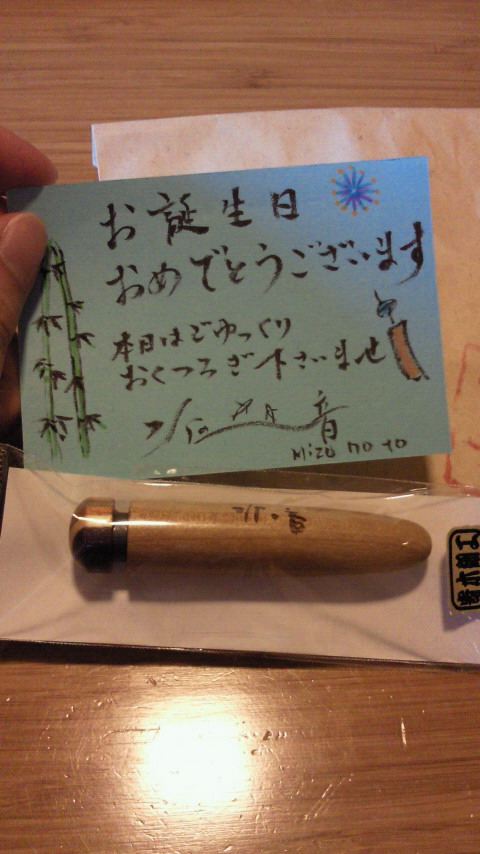 お誕生日
おめでとうございます
本日はごゆっくり
おくつろぎ下さいませ
音
Mizu no to